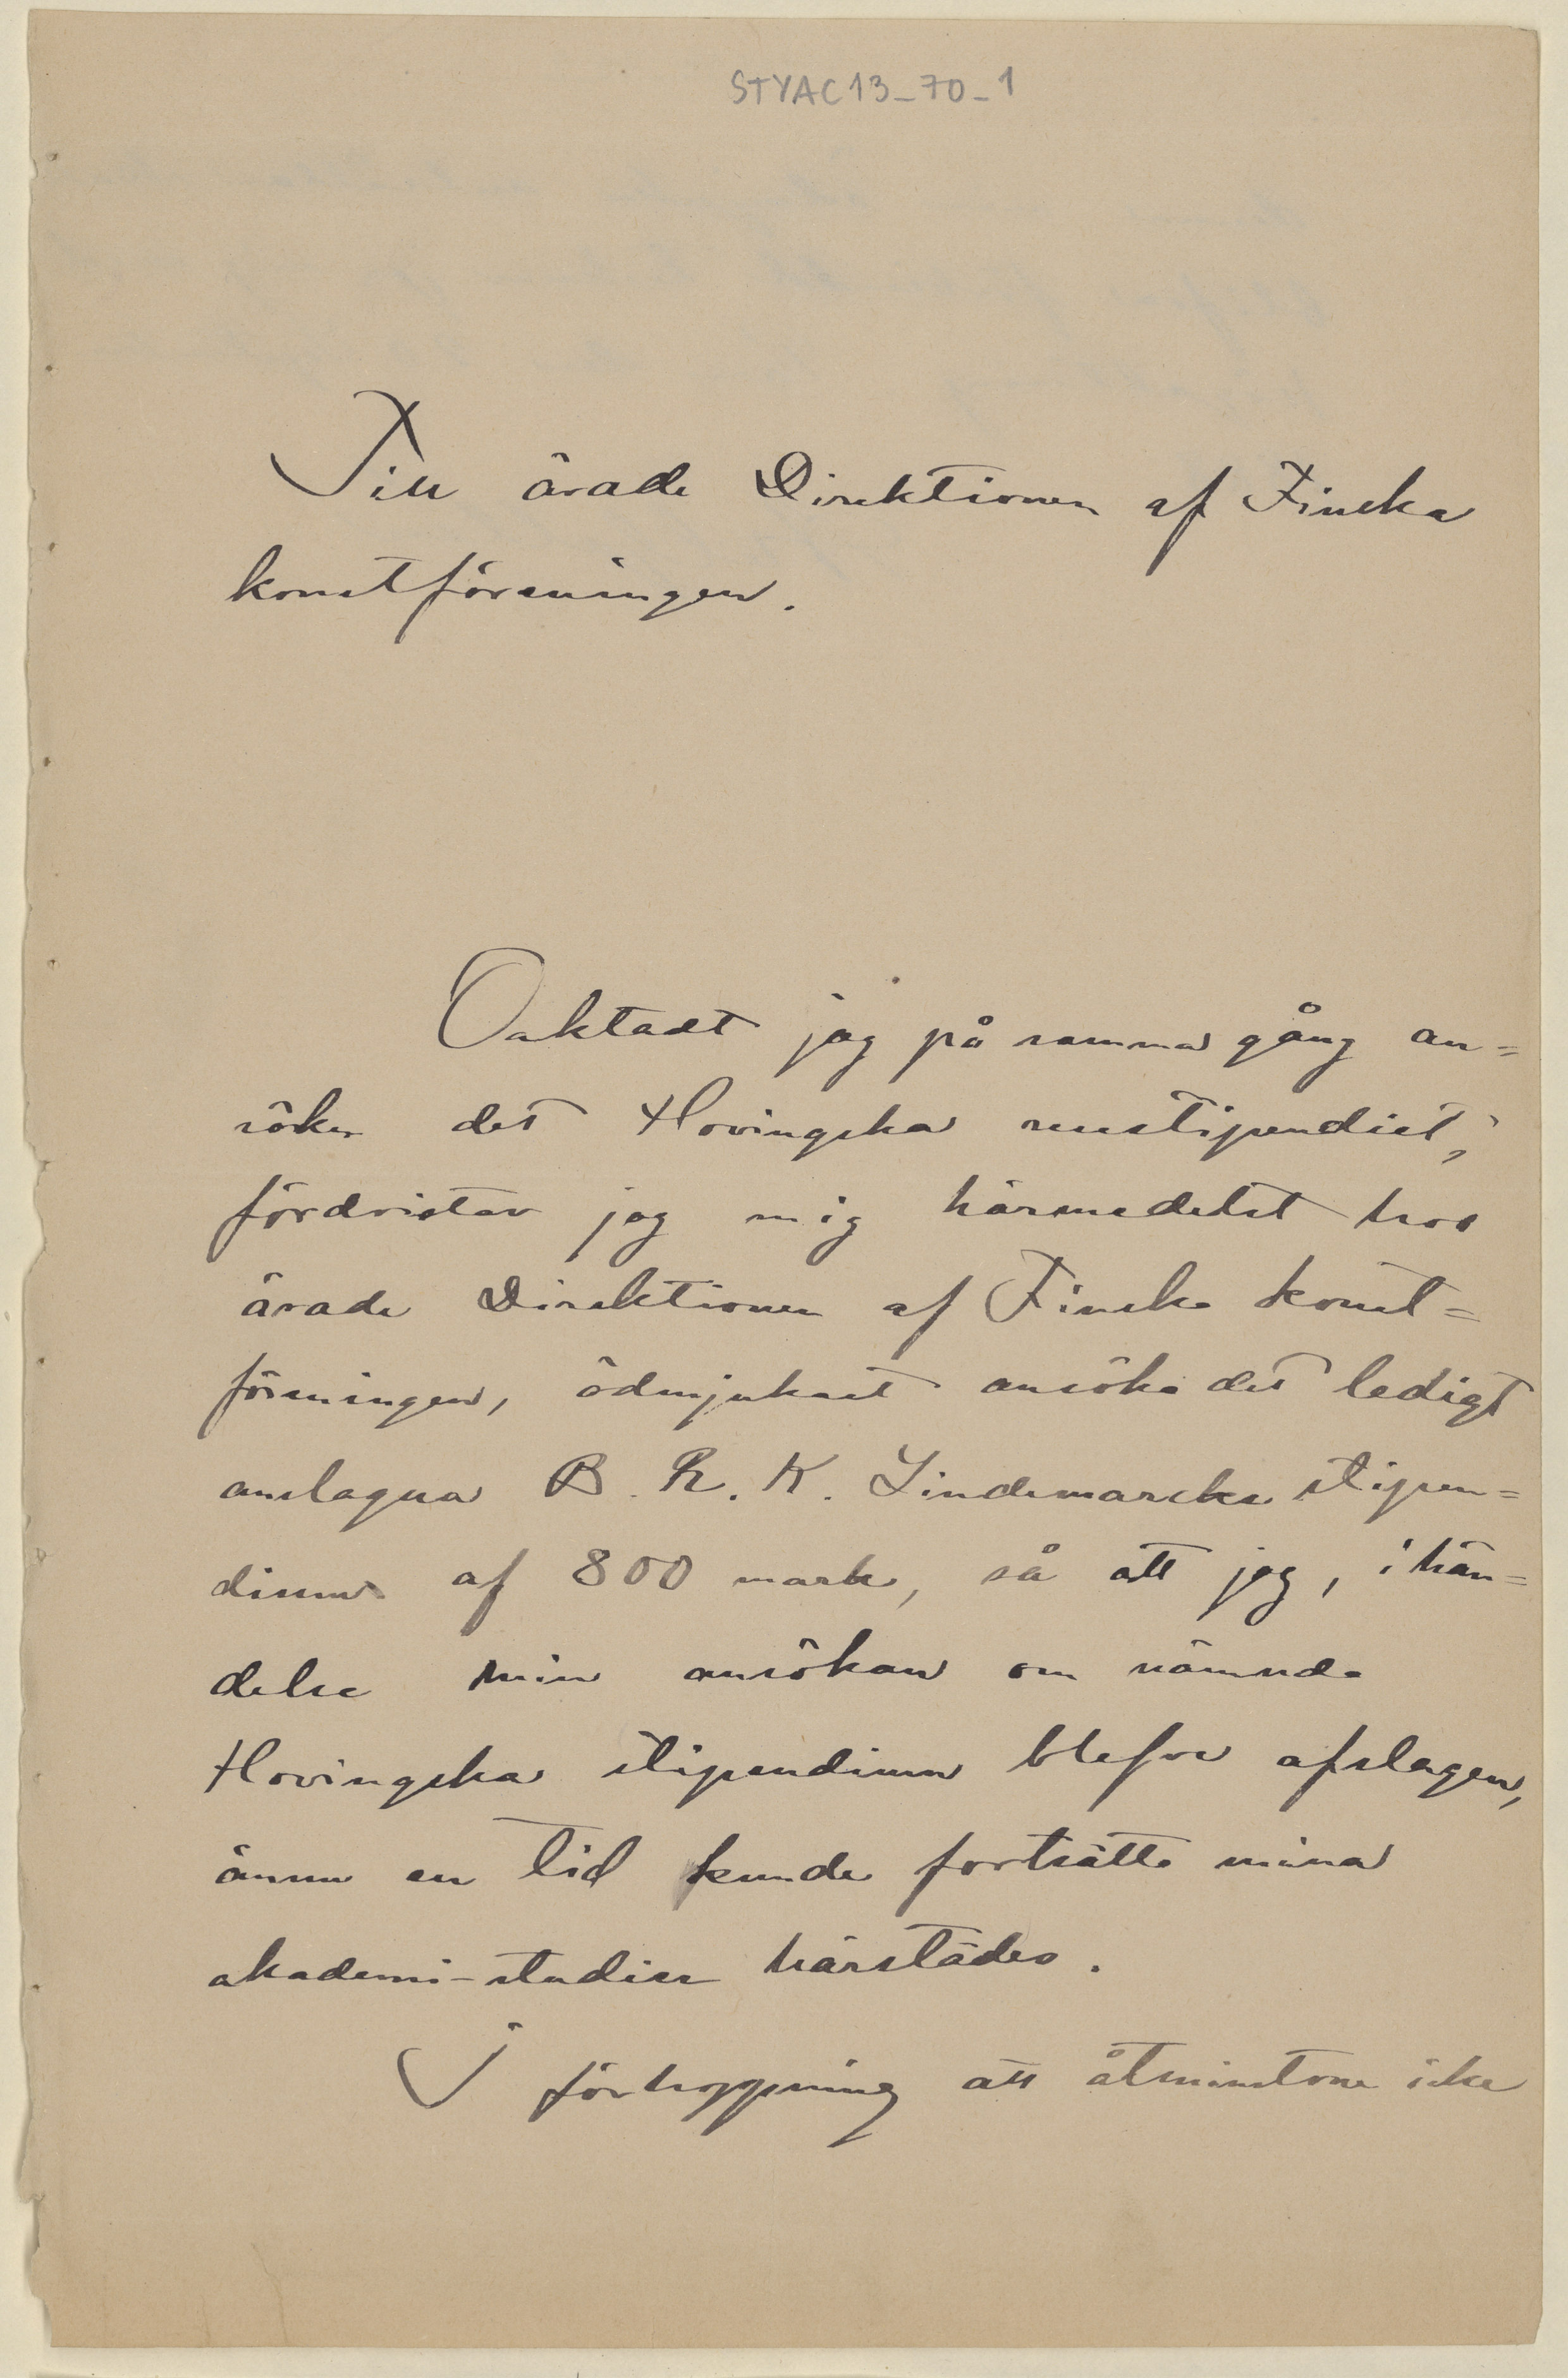 STYAC13_70_1
Till ärade Direktionen af Finska
konstföreningen.
Oaktadt jag på samma gång an=
söker det Hovingska resestipendiet,
fördristar jag mig härmedelst hos
ärade Direktionen af Finska konst=
föreningen, ödmjukast ansöka det ledigt
anslagna B. R. K. Lindemarcks stipen=
dium af 800 mark, så att jag, i hän=
delse min ansökan om nämnda
Hovingska stipendium blefve afslagen,
ännu en tid kunde fortsätta mina
akademi-studier härstädes.
I förhoppning att åtminstone icke